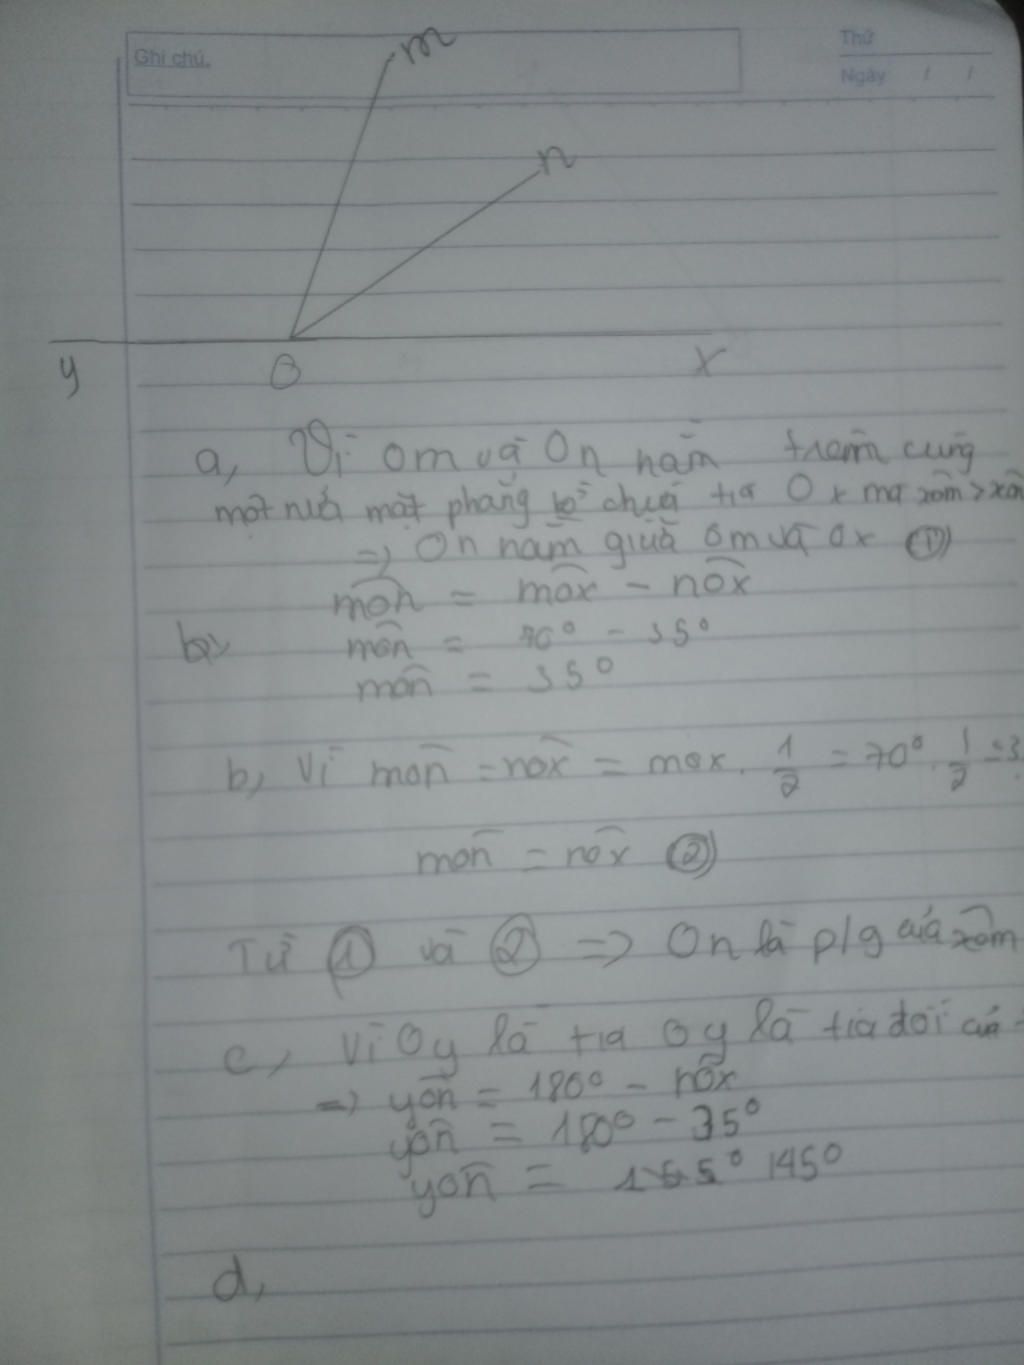 Ghi chú.
Thứ
Ngày / /
m
n
y
O
x
a, Vì Om và On nằm trên cùng
một nửa mặt phẳng bờ chứa tia Ox mà xôm > xôn
=> On nằm giữa Om và Ox ①
môn = môx - nôx
b,
môn = 70° - 35°
môn = 35°
b, Vì môn = nôx = mox . 1/2 = 70° . 1/2 = 3
môn = nôx ②
Từ ① và ② => On là p/g của xôm
c, Vì Oy là tia Oy là tia đối của
=> yôn = 180° - nôx
yôn = 180° - 35°
yôn = 145°
d,